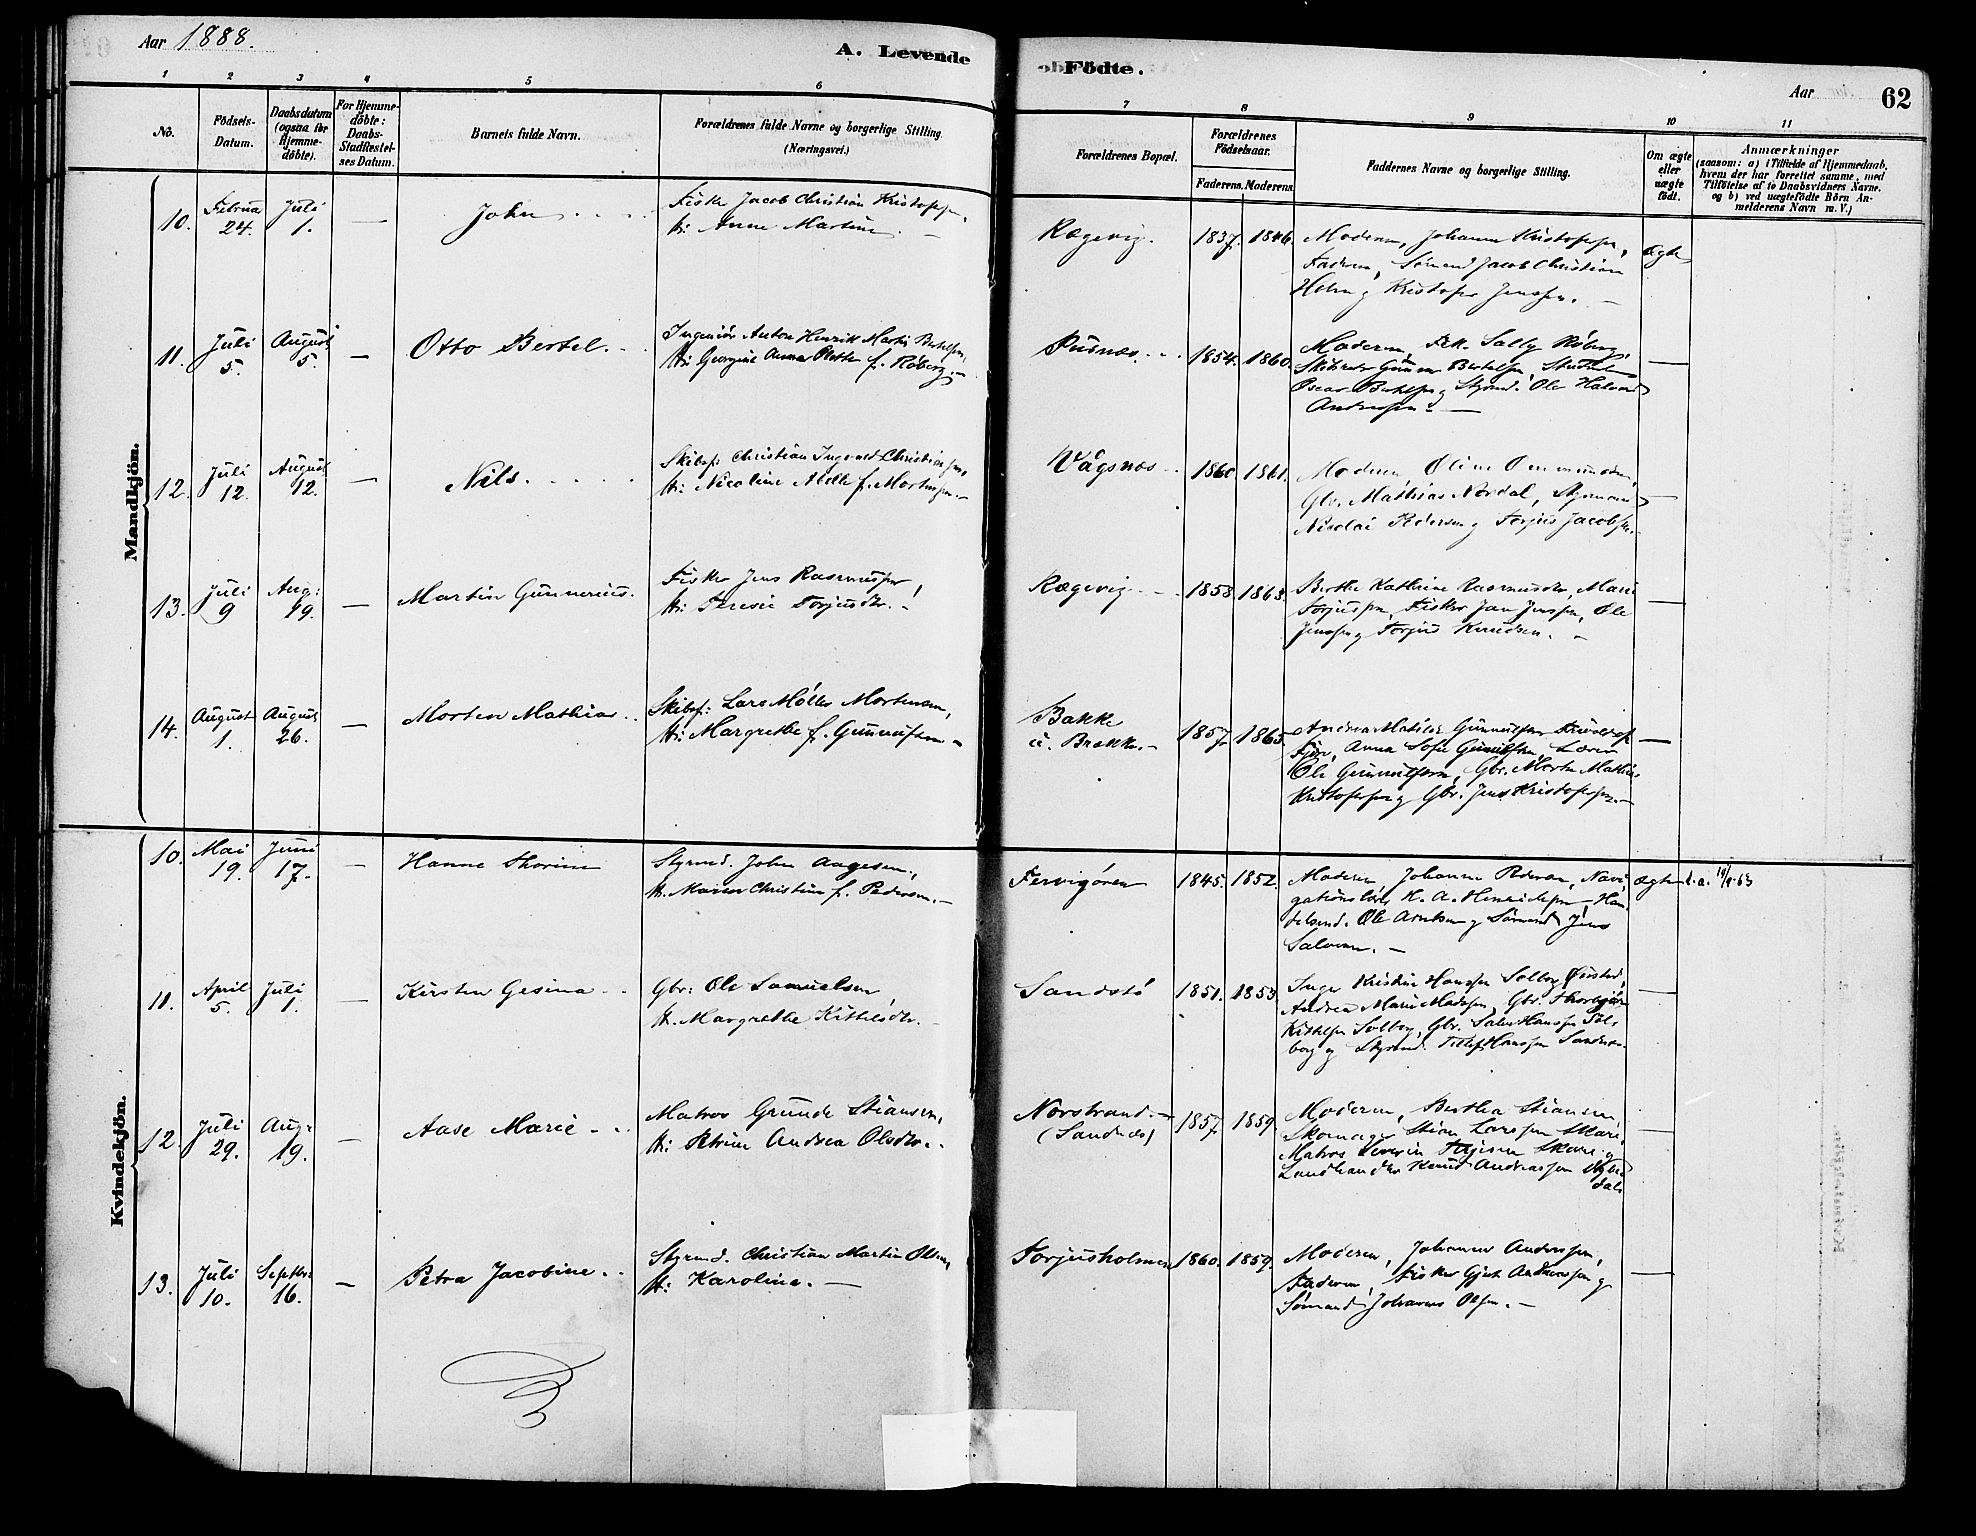 Aar 1888.
A. Levende
Födte.
Aar
62
1
2
3
4
5
6
7
8
9
10
11
No.
Födsels-
Datum.
Daabsdatum
(ogsaa for
Hjemme-
döbte).
For Hjemme-
döbte:
Daabs-
Stadfæstel-
ses Datum.
Barnets fulde Navn.
Forældrenes fulde Navne og borgerlige Stilling.
(Næringsvei.)
Forældrenes Bopæl.
Forældrenes
Födselsaar.
Faderens. Moderens.
Faddernes Navne og borgerlige Stilling.
Om ægte
eller
uægte
födt.
Anmærkninger
(saasom: a) i Tilfælde af Hjemmedaab,
hvem der har forrettet samme, med
Tilföielse af to Daabsvidners Navne.
og b) ved uægtefödte Börn An-
melderens Navn m. V.)
Mandkjön.
10.
Februar
24.
Juli
1.
—
John
Fisker Jacob Christian Kristophersen,
H: Anne Martine
Rægevig.
1837. 1846.
Moderen, Johanne Kristophersen,
Faderen, Sømand Jacob Christian
Holm og Kristofer Jenssen. —
ægte
11.
Juli
5.
August
5.
—
Otto Bertel.
Ingeniör Anton Henrik Martin Bertelsen,
H: Georgine Anna f. Röberg. —
Pusnæs
1854. 1860.
Moderen, Frk. Sally Röberg,
Gunnar Bertelsen, Student
Oscar Bertelsen og Styrmd. Ole Halvor
Andreassen. —
—
12.
Juli
12.
August
12.
—
Nils.
Skibsf: Christian Ingvard Christiansen,
H: Nicoline Melle f. Mortensen. —
Vågsnæs
1860. 1861.
Moderen, Oline
Gbr. Mathias Nordal, Styrmand
Nicolai Pedersen og Torjus Jacobsen.
—
13.
Juli
9
Aug:
19.
—
Martin Gunnerius.
Fisker Jens Rasmussen,
H: Teresie Torjusdtr. —
Rægevig
1858. 1863.
Berthe Kathrine Rasmusdtr, Marie
Torjussen, Fisker Jan Jenssen, Ole
Jenssen og Torjus Knudsen. —
—
14.
August
1.
August
26.
—
Morten Mathias
Skibsf: Lars Möller Mortensen,
H: Margrethe f. Gunnufsen —
Bakke
u. Brække. —
1857. 1865.
Andrea Matilde Gunnufsen
Fjære, Anna Sofie Gunnufsen, Lærer
Ole Gunnufsen, Gbr. Morten Mathias
Kristophersen og Gbr. Jens Kristophersen. —
—
Kvindekjön.
10.
Mai
19.
Juni
17.
—
Hanne Thorine
Styrmd. John Aagesen,
H. Maren Christine f. Pedersen. —
Fervigören
1845. 1852.
Moderen, Johanne Pedersen, Navi-
gationslær. K. A. Henrichsen, Han-
delsmd. Ole Arntsen og Sömand Jens
Salvesen. —
ægte
d.a.
11.
April
5.
Juli
1.
—
Kirsten Gesina
Gbr: Ole Samuelsen
H. Margrethe Kittilsdtr. —
Sandstö
1851. 1853.
Inger Kristine Hanssen Solborg,
Andrea Marie Madssen, Gbr. Thorbjörn
Kittelsen Solborg, Gbr. Salve Hanssen Sol-
borg og Styrmd. Hanssen Sandnæs.
—
12.
Juli
29.
Aug:
19.
—
Aase Marie
Matros Grunde Stiansen,
H: Petrine Andrea Olsdtr.
Norstrand. —
(Sandnæs)
1857. 1859.
Moderen, Berthea Stiansen
Skomager Stian Larssen Skare,
Matros Severin Terjesen Skare og
Landhandler Knud Andreassen Nybu
dal.
—
13.
Juli
10.
Septbr:
16.
—
Petra Jacobine.
Styrmd. Christian Martin Olsen,
H: Karoline. —
Torjusholmen
1860. 1859.
Moderen, Johanne Anderssen,
Faderen, Fisker Gjert Anderssen og
Sömand Johannes Olsen. —
—